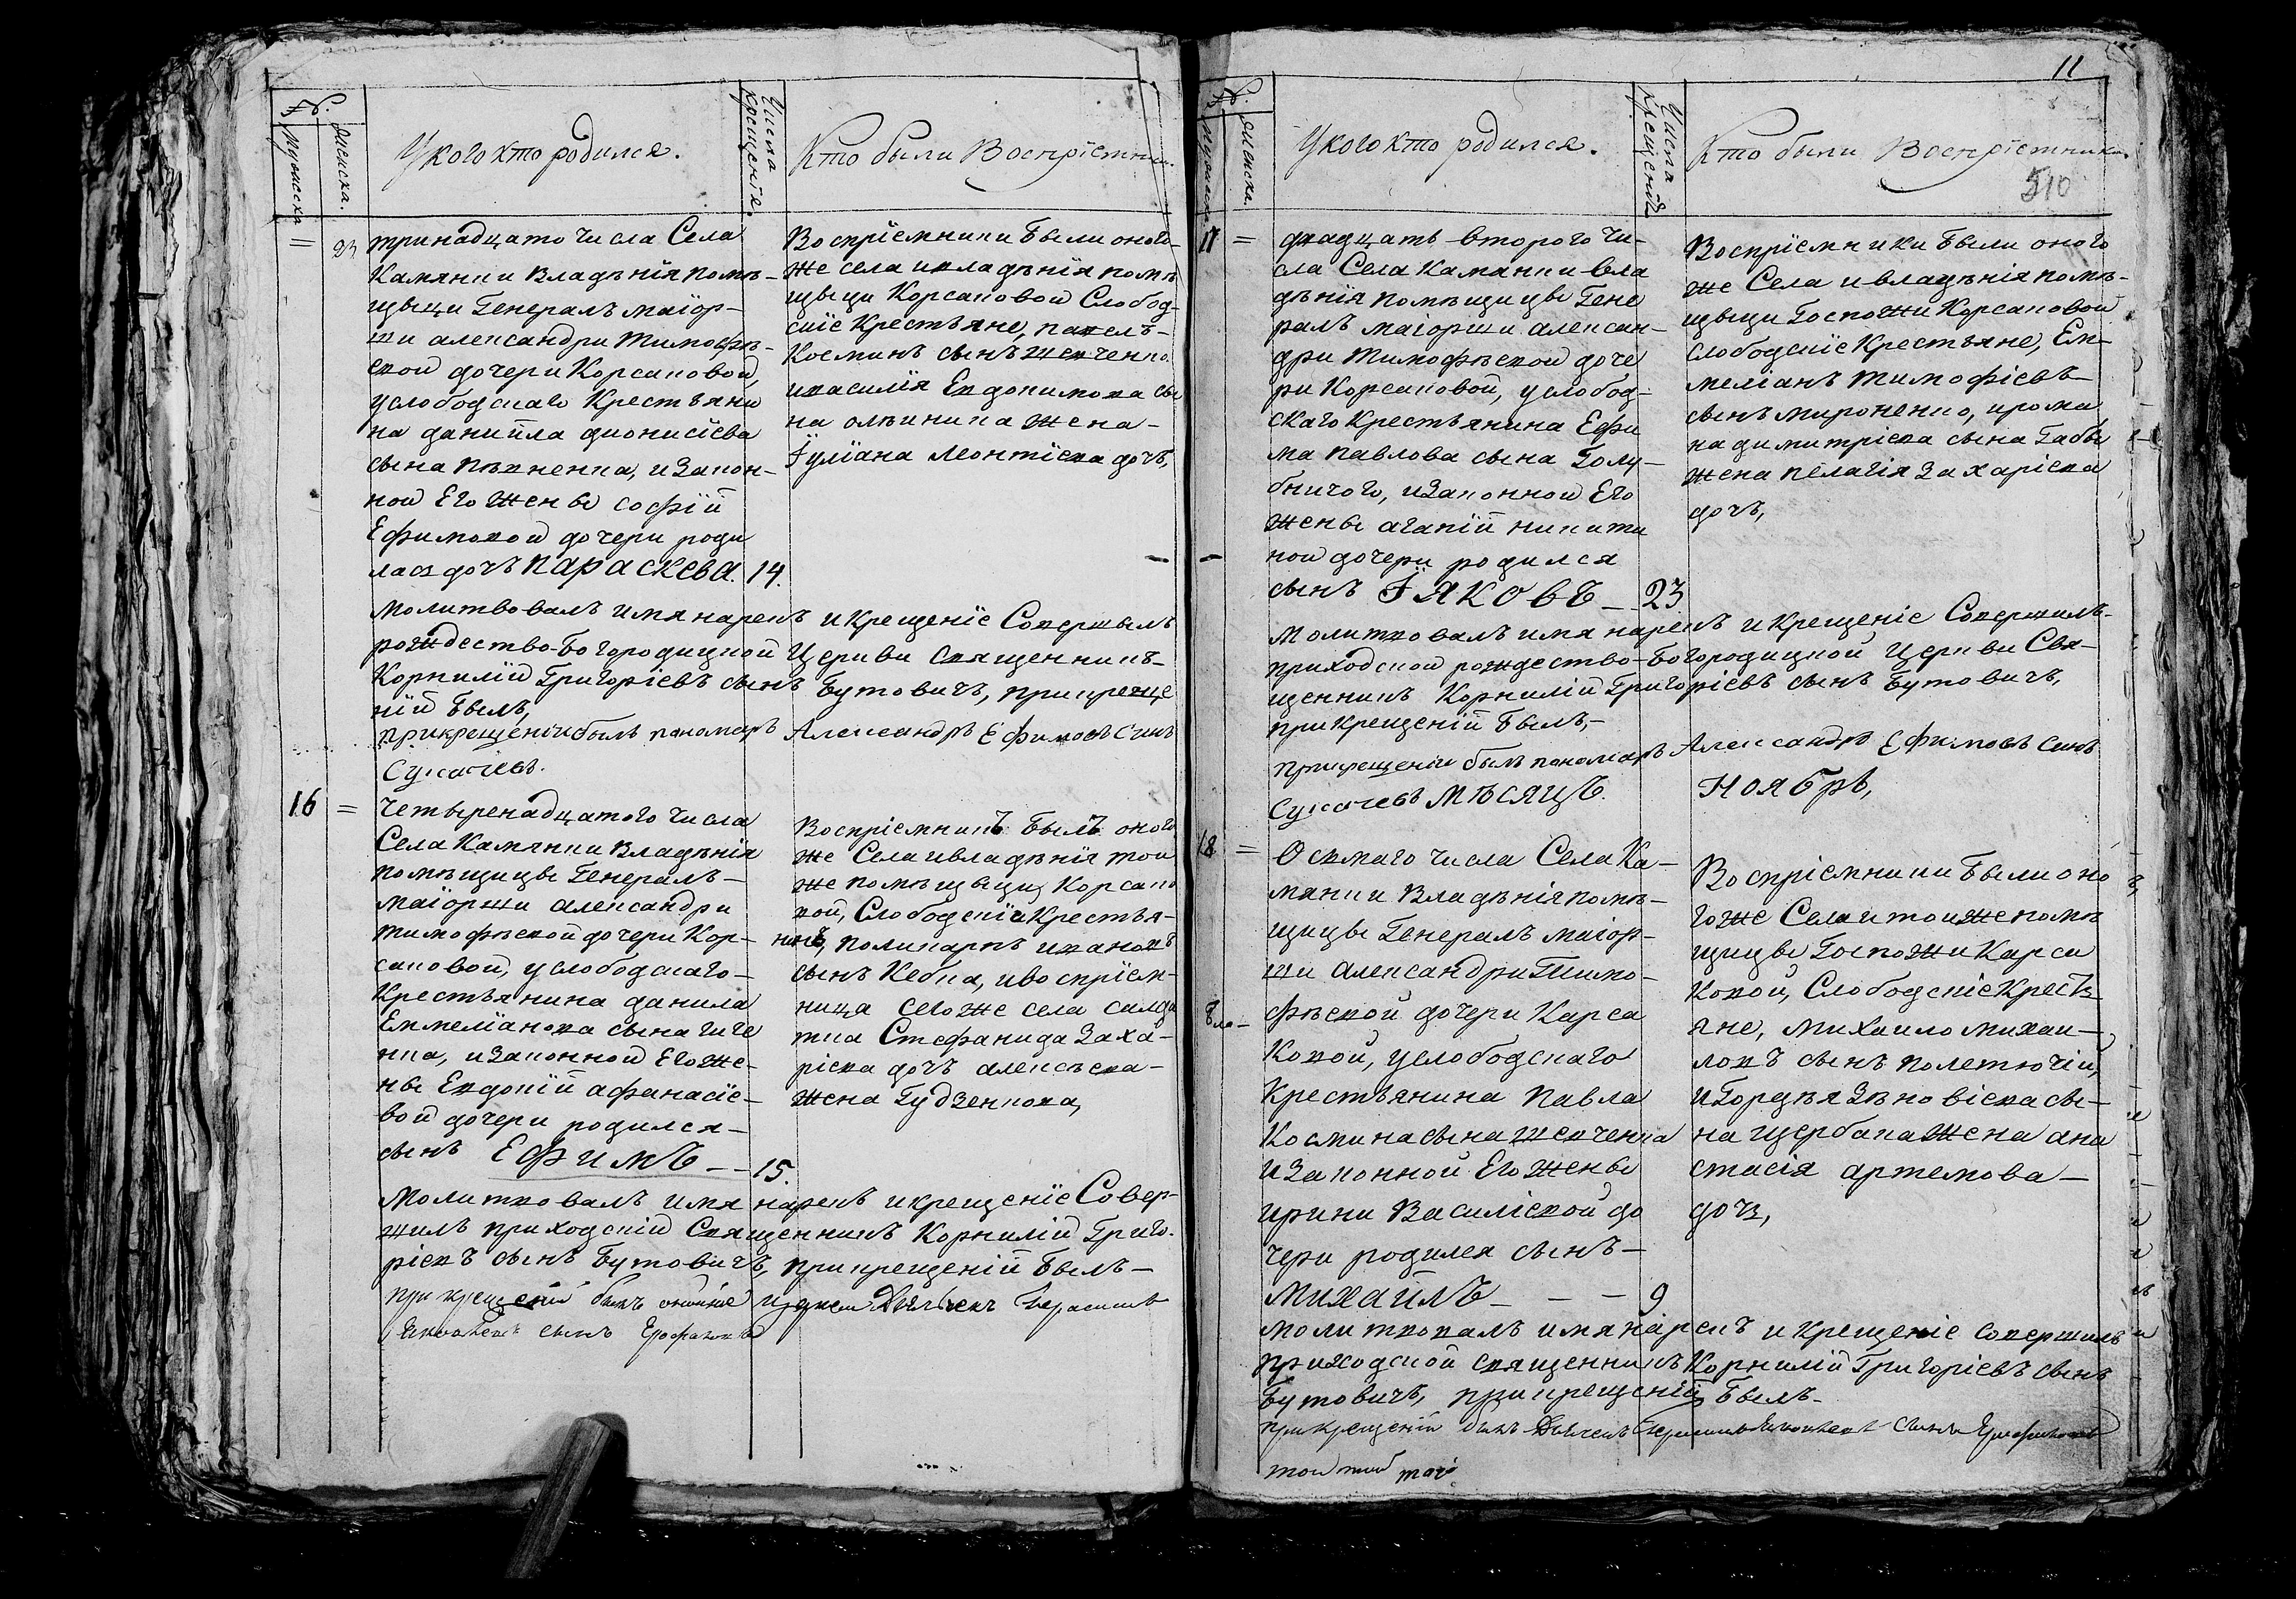 №.
Мужеска
Женска.
У кого кто родился.
Числа крещенія.
Кто были Воспріемни.
= 23 тринадцато числа Села
Камянки Владѣнія помѣ-
щыци Генералъ маіор-
ши александри тимофѣ-
евой дочери Корсаковой,
услободскаго Крестьяни
на даніила дионисіева
сына , изакон-
ной Его жены софіи
Ефимовой дочери роди
лась дочъ параскева. 14.
Воспріемники были оного-
же села ивладѣнія помѣ
щыци Корсаковои Слобод-
скіе Крестьяне, павелъ-
Косминъ сынъ Шевченко
ивасилія Евдокимова сы
на жена-
Іуліана леонтіева дочъ,
молитвовалъ имянарекъ икрещеніе Совершылъ
рождество-Богородицкой Церкви священникъ-
Корнилій Григоріевъ сынъ Бутовичъ, прикреще
ній былъ,
прикрещеніи былъ пономаръ Александръ Ефимовъ синъ
Сукачевъ.
16 = Четыренадцатого числа
Села Камянки Владѣнія
помѣщицы Генералъ-
маіорши александри
тимофѣевой дочери Кор-
саковой, услободскаго-
Крестьянина данила
Емеліанова сына чиче
нка, изаконной Егоже-
ны Евдокіи афанасіе-
вой дочери родился-
сынъ Ефимъ - - 15.
Воспріемникъ былъ оного
же Села ивладѣнія той
же помѣщыци, Корсако
вой, Слободскій Крестья-
нинъ, поликарпъ ивановъ
сынъ Кебка, ивоспріем-
ница сегоже села салда
тка Стефанида Заха-
ріева дочъ алексѣева-
жена Гудзенкова,
Молитвовалъ имя нарекъ икрещеніе Совер-
шилъ приходскій Священникъ Корнилій Григо-
ріевъ сынъ Бутовичъ, прикрещеній былъ-
при крещеній былъ оной же церкви Дьячекъ Герасимъ
сынъ
11
510
№.
Мужеска
Женска.
У кого кто родился.
Числа крещенія
Кто были Воспріемники.
17 = двадцать-второго чи-
сла Села Камянки Вла
дѣнія помѣщицы Гене
ралъ маіорши алексан-
дри тимофѣевой доче
ри Корсаковой, услобод-
скаго Крестьянина Ефи
ма павлова сына Голу-
бничого, изаконной Его
жены агапіи никити
ной дочери родился
сынъ Іяковъ - 23
Воспріемники были оного
же Села ивладѣнія помѣ-
щыци Госпожи Корсаковой
слободскіе Крестьяне, Ем-
меліанъ тимофіевъ-
сынъ мироненко, ирома
на димитріева сына Габы
жена пелагія Захаріева
дочъ,
молитвовалъ имя нарекъ и крещеніе Совершилъ-
приходской рождество-Богородицкой Церкви Свя-
щенникъ Корнилій Григоріевъ сынъ Бутовичъ,
при крещеній былъ,-
прикрещеніи былъ пономаръ Александръ Ефимовъ синъ
Сукачевъ мѣсяцъ. Ноябрь,
18 = Осьмаго числа Села Ка-
мянки Владѣнія помѣ-
щицы Генералъ маіор-
ши александри Тимо-
фѣевой дочери Карса
ковой, услободскаго
Крестьянина павла
Космина сына Шевченка
изаконной Его жены
ирини Василіевой до
чери родился сынъ-
михаилъ - - - 9
Воспріемники были оно
гоже Села и тоиже помѣ
щицы Госпожи Карса
ковой, Слободскіе Кресть
яне, михаило михаи-
ловъ сынъ полетючій,
иГордѣя Зѣновіева сы-
на щербака жена ана
стасія артемова-
дочъ,
молитвовалъ имянарекъ и крещеніе совершилъ
приходской священникъ Корнилій Григоріевъ сынъ
Бутовичъ, прикрещеній былъ-
прикрещеній былъ Дьячекъ Герасимъ сынъ